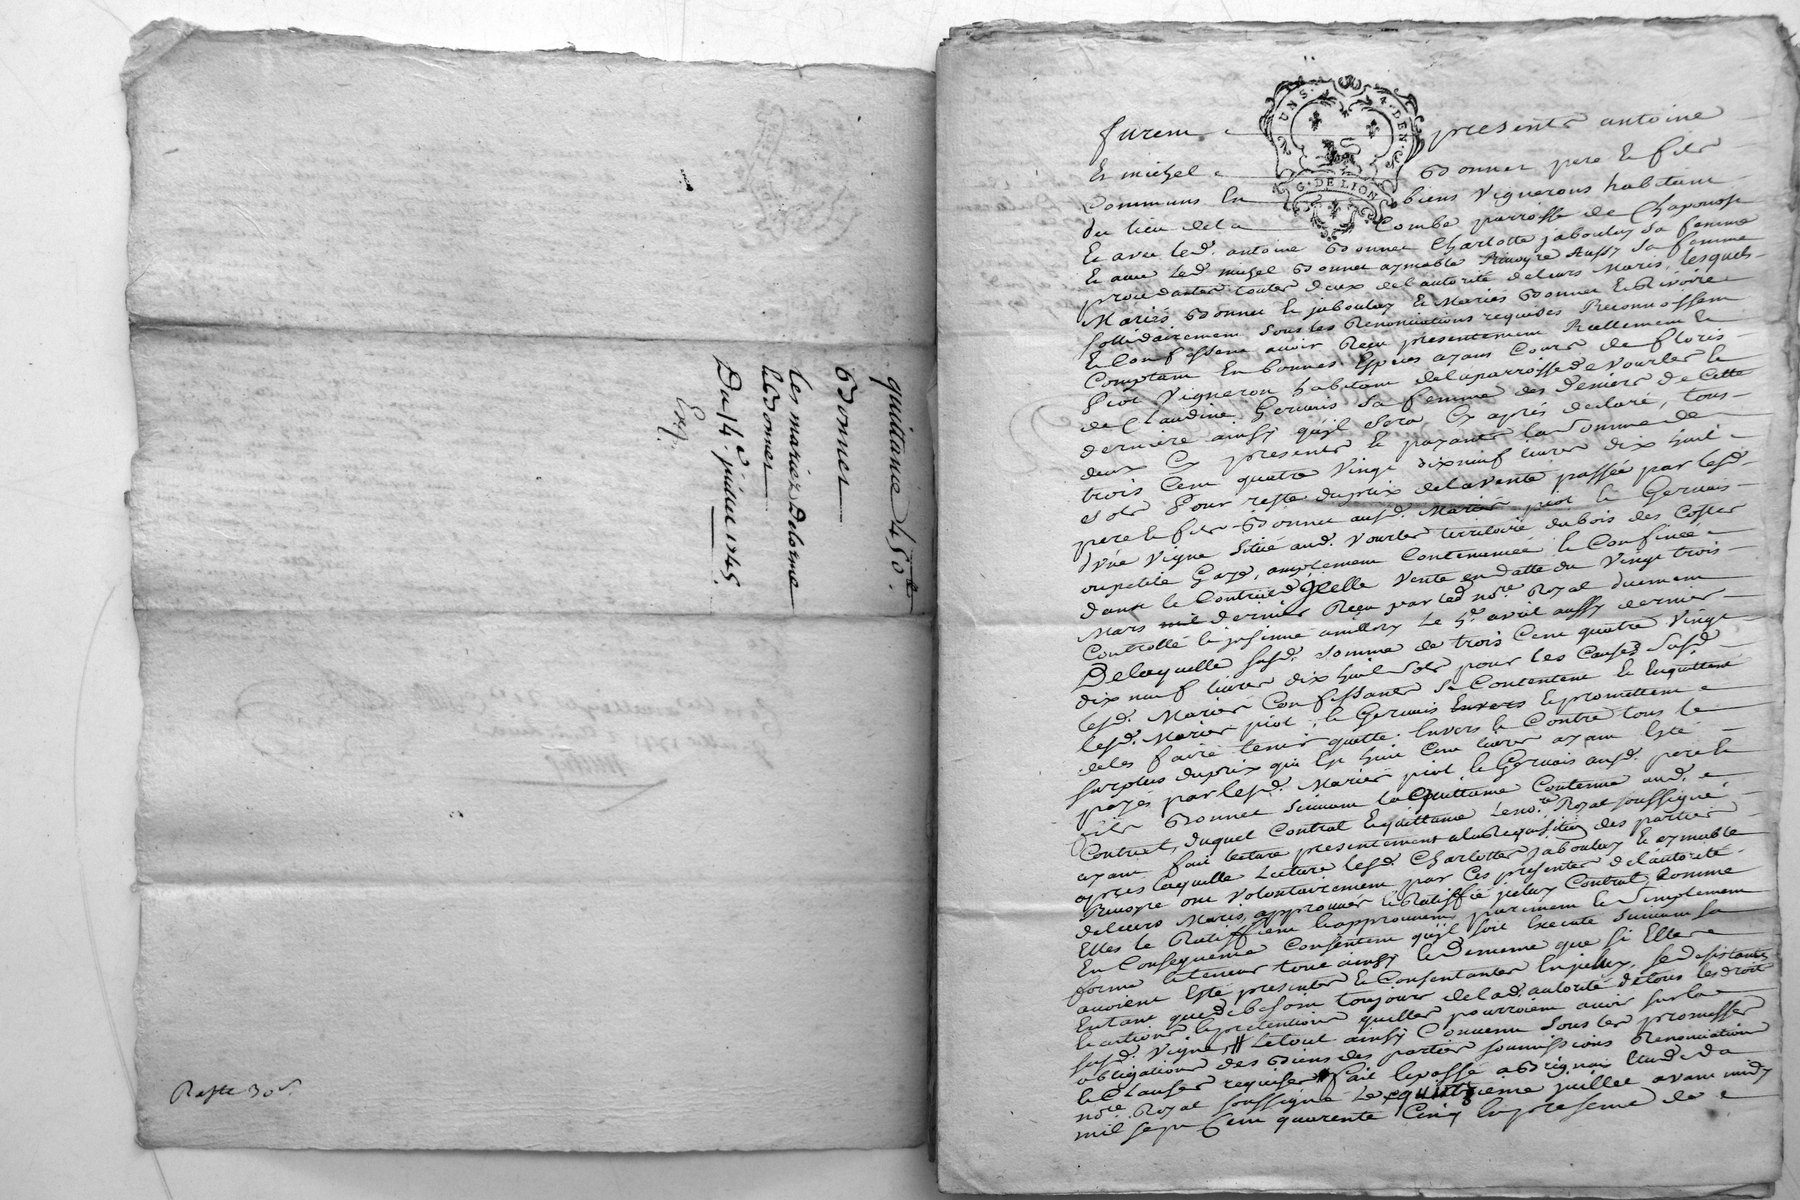 quittance 450.lt
Bonnet
Les mariez Delorme
& Bonnet
Du 14.e juillet 1745
Exp.
Reste 30s.
UNS. 4. DEN.
G. DE LION
furent presents antoine
Et michel Bonnet pere & fils
Communs En biens Vignerons habitant
du lieu dela Combe parroisse de Chaponost
Et avec led. antoine Bonnet Charlotte jaboulay sa femme
Et avec led. michel Bonnet aymable Rivoyre Aussy sa femme
procedantes toutes deux de l'autorité de leurs Maris, lesquels
Mariés Bonnet & jaboulay & Mariés Bonnet & Rivoire
sollidairement sous les Renonciations requises Reconnoissent
Et Confessent avoir Reçu presentement Reellement &
Comptant En bonnes Especes ayant Cours de floris
piot Vigneron habitant dela parroisse de Vourles &
de Claudine Gervais sa femme des deniers de Cette
derniere ainsy qu'il sera Cy après declaré, tous
deux Cy presents & payants la somme de
trois Cent quatre Vingt dix neuf livres dix huit
sols Pour reste du prix dela vente passée par lesd.
pere & fils Bonnet ausd. Mariés piot & Gervais
d'une Vigne située aud. Vourles territoire du bois des Costes
ou petite Gaye, amplement Contenuée & Confinée
dans le Contract d'Icelle Vente en datte du Vingt trois
Mars mil dernier Reçu par led. no.re Royal duement
Controllé & insinué a millery le 5.e avril aussy dernier
De laquelle susd. somme de trois Cent quatre Vingt
dix neuf livres dix huit sols pour les Causes susd.
lesd. Mariés Confessants se Contentent & En quittent
lesd. Mariés piot & Gervais Envers & promettent
de les faire tenir quitte Envers & Contre tous le
surplus du prix qui Est huit Cent livres ayant Esté
payés par lesd. Mariés piot & Gervais ausd. pere &
fils Bonnet suivant la Quittance Contenue aud.
Contract, duquel Contrat & quittance Le no.re Royal soussigné
ayant fait lecture presentement a la Requisition des parties
après laquelle Lecture lesd. Charlotte jaboulay & aymable
Rivoyre ont volontairement par Ces presentes de l'autorité
de leurs Maris, approuvé & Ratiffié jceluy Contrat, Comme
Elles le Ratiffient & approuvent purement & simplement
En Consequence Consentent qu'il soit Executé suivant sa
forme & teneur tout ainsy & de meme que si Elles
avoient Esté presentes & Consentantes En jceluy, se desistants
En tant que de besoin toujours de lad. autorité de tous les droits
& actions & pretentions qu'elles pourroient avoir sur la
susd. Vigne, # Le tout ainsy Convenu sous les promesses
obligations des Biens des parties soumissions Renonciation
& Clauses requises # fait & passé a Brignais Etude du
no.re Royal soussigné Le quatorzieme juillet avant midy
mil sept Cent quarente Cinq En presence de